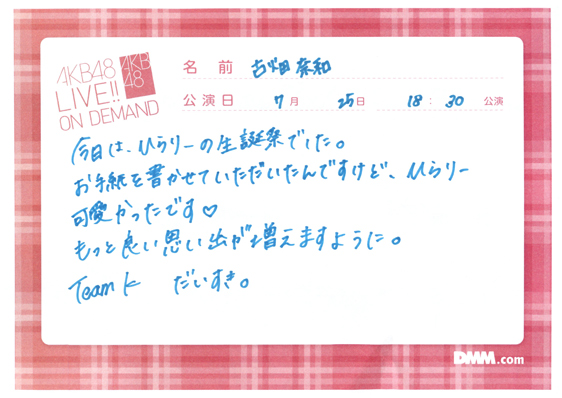 AKB48
LIVE!!
ON DEMAND
AKB
48
名 前 古畑奈和
公演日 7月 25日 18:30 公演
今日は、ひらりーの生誕祭でした。
お手紙を書かせていただいたんですけど、ひらりー
可愛かったです♡
もっと良い思い出が増えますように。
Team K だいすき。
DMM.com